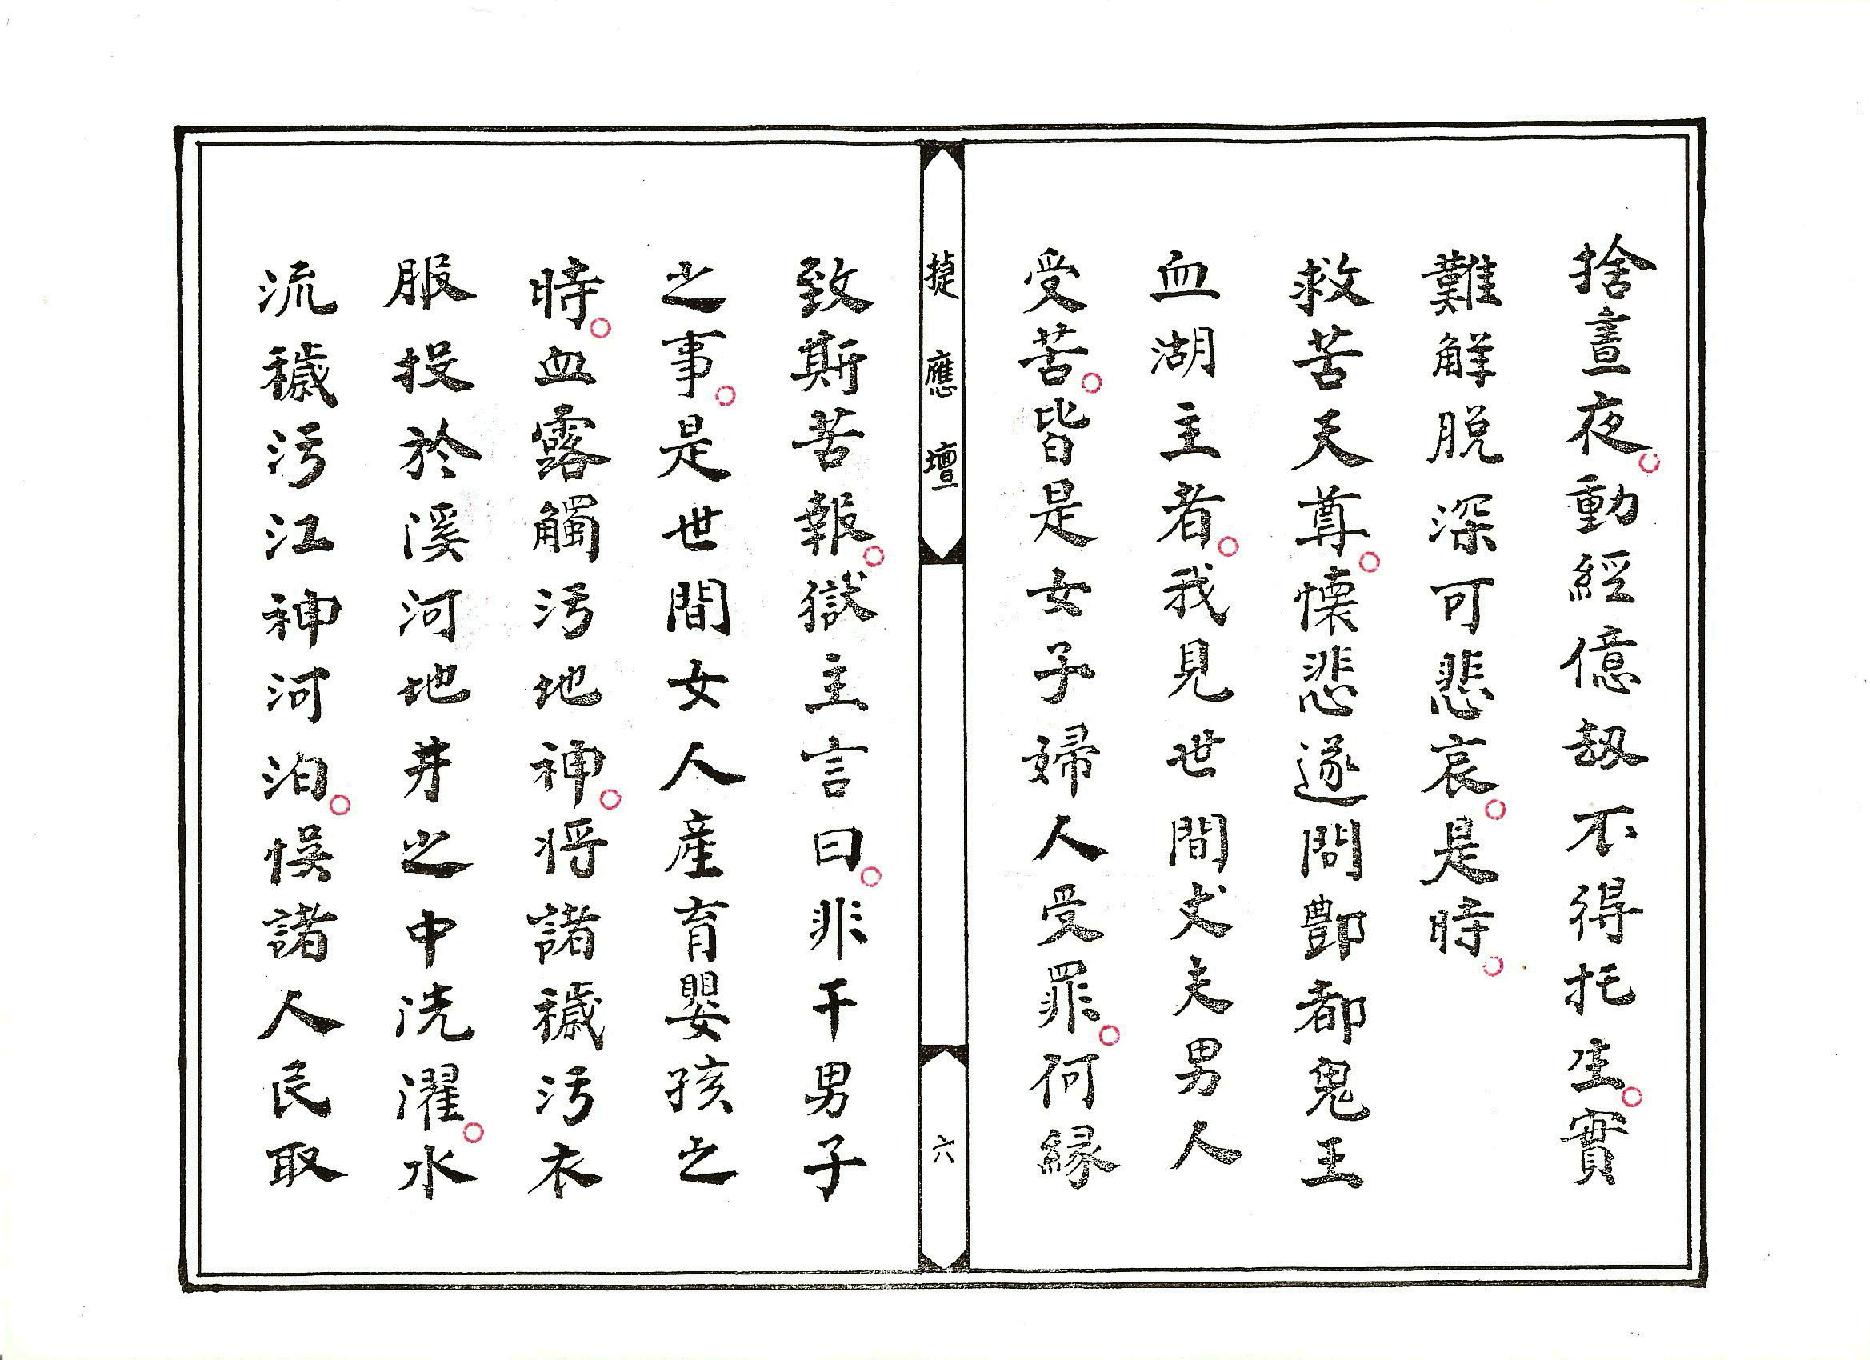 捨晝夜。動經億刼不得托生。實
難解脱深可悲哀。是時。
救苦天尊。懷悲遂問酆都鬼王
血湖主者。我見世間丈夫男人
受苦。皆是女子婦人受罪。何縁
捷應壇
六
致斯苦報。獄主言曰。非干男子
之事。是世間女人產育嬰孩之
時。血露觸污地神。将諸穢污衣
服投於溪河地井之中洗濯。水
流穢污江神河泊。悮諸人民取